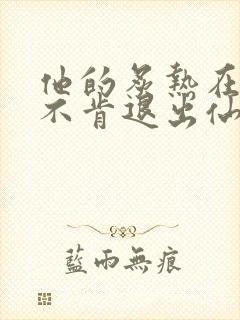 他的炙熱在
不肯退出仙
藍雨無痕